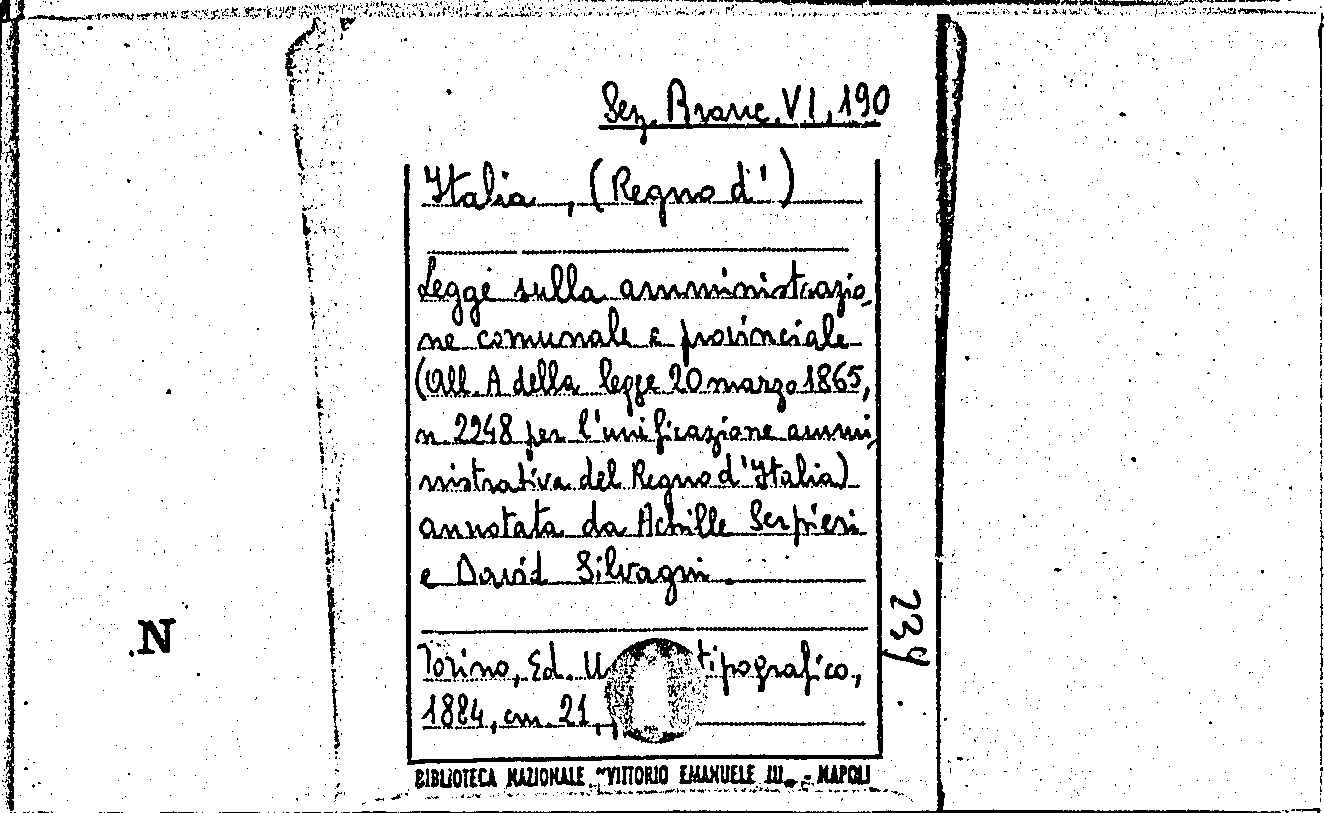 Sez. Branc. VI, 190
Italia, (Regno d')
Legge sulla amministrazio
ne comunale e provinciale
(All. A della legge 20 marzo 1865,
n. 2248 per l'unificazione ammi
nistrativa del Regno d'Italia)
annotata da Achille Serpieri
e David Silvagni.
Torino, Ed. U tipografico,
1884, cm. 21,
BIBLIOTECA NAZIONALE "VITTORIO EMANUELE III" - NAPOLI
N